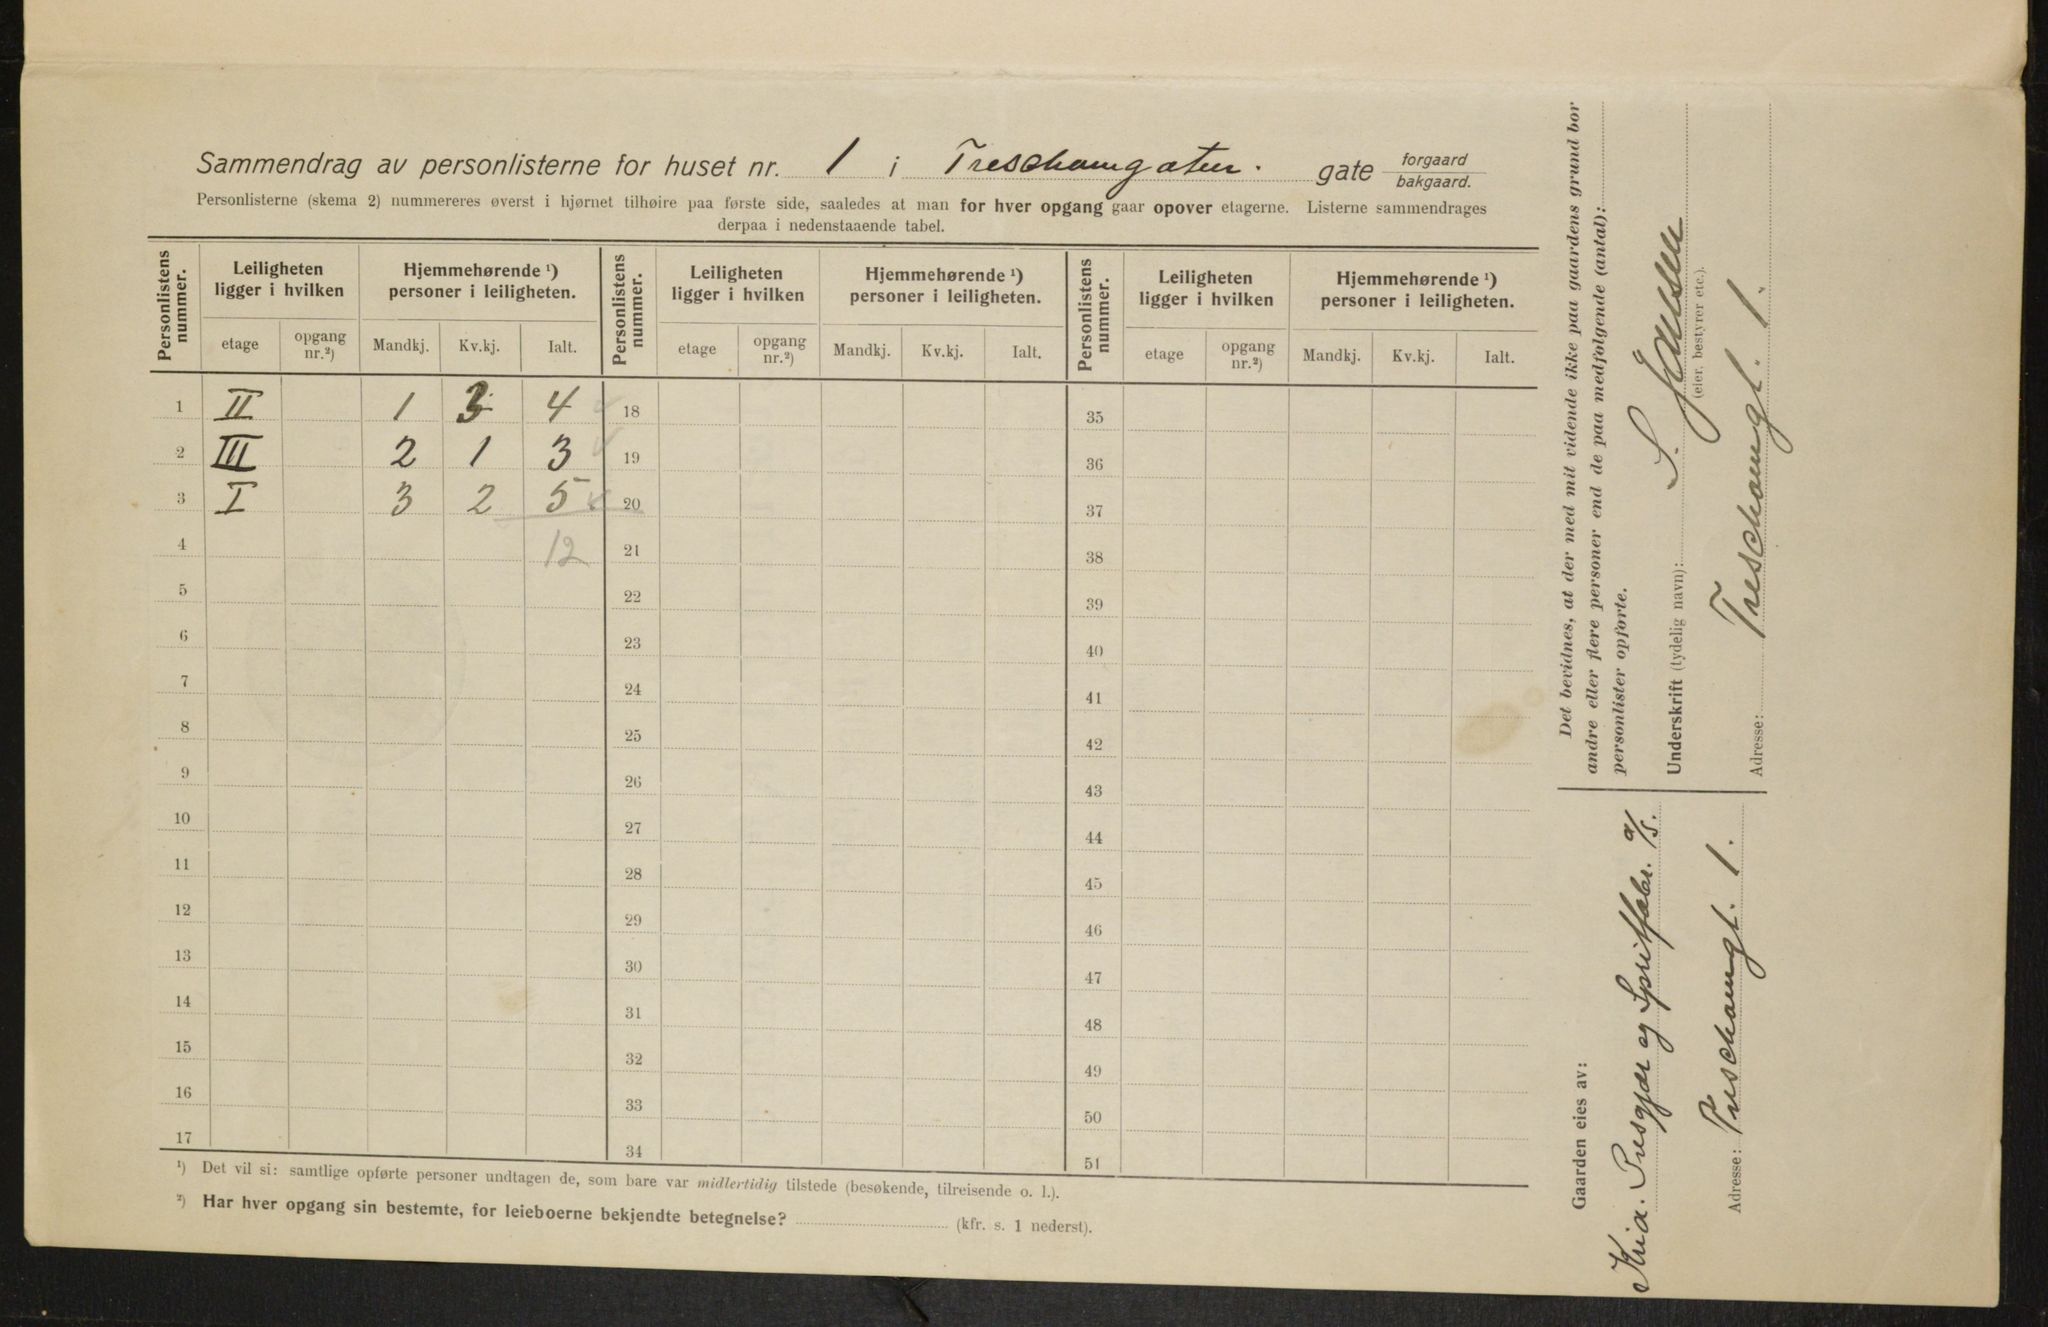 Sammendrag av personlisterne for huset nr. 1 i Treschowsgaten. gate forgaard bakgaard.
Personlisterne (skema 2) nummereres øverst i hjørnet tilhøire paa første side, saaledes at man for hver opgang gaar opover etagerne. Listerne sammendrages
derpaa i nedenstaaende tabel.
Personlistens nummer. Leiligheten ligger i hvilken Hjemmehørende ¹) personer i leiligheten. Personlistens nummer. Leiligheten ligger i hvilken Hjemmehørende ¹) personer i leiligheten. Personlistens nummer. Leiligheten ligger i hvilken Hjemmehørende ¹) personer i leiligheten.
etage opgang nr.²) Mandkj. Kv.kj. Ialt. etage opgang nr.²) Mandkj. Kv.kj. Ialt. etage opgang nr.²) Mandkj. Kv.kj. Ialt.
1 II 1 3 4 18 35
2 III 2 1 3 19 36
3 I 3 2 5 20 37
4 12 21 38
5 22 39
6 23 40
7 24 41
8 25 42
9 26 43
10 27 44
11 28 45
12 29 46
13 30 47
14 31 48
15 32 49
16 33 50
17 34 51
¹) Det vil si: samtlige opførte personer undtagen de, som bare var midlertidig tilstede (besøkende, tilreisende o. l.).
²) Har hver opgang sin bestemte, for leieboerne bekjendte betegnelse? (kfr. s. 1 nederst).
Det bevidnes, at der med mit vidende ikke paa gaardens grund bor
andre eller flere personer end de paa medfølgende (antal):
personlister opførte.
Underskrift (tydelig navn): S. Jansen
(eier, bestyrer etc.).
Adresse: Treschowsgt. 1.
Gaarden eies av:
Kria. Presgjær og Spritfabr. a/s.
Adresse: Treschowsgt. 1.